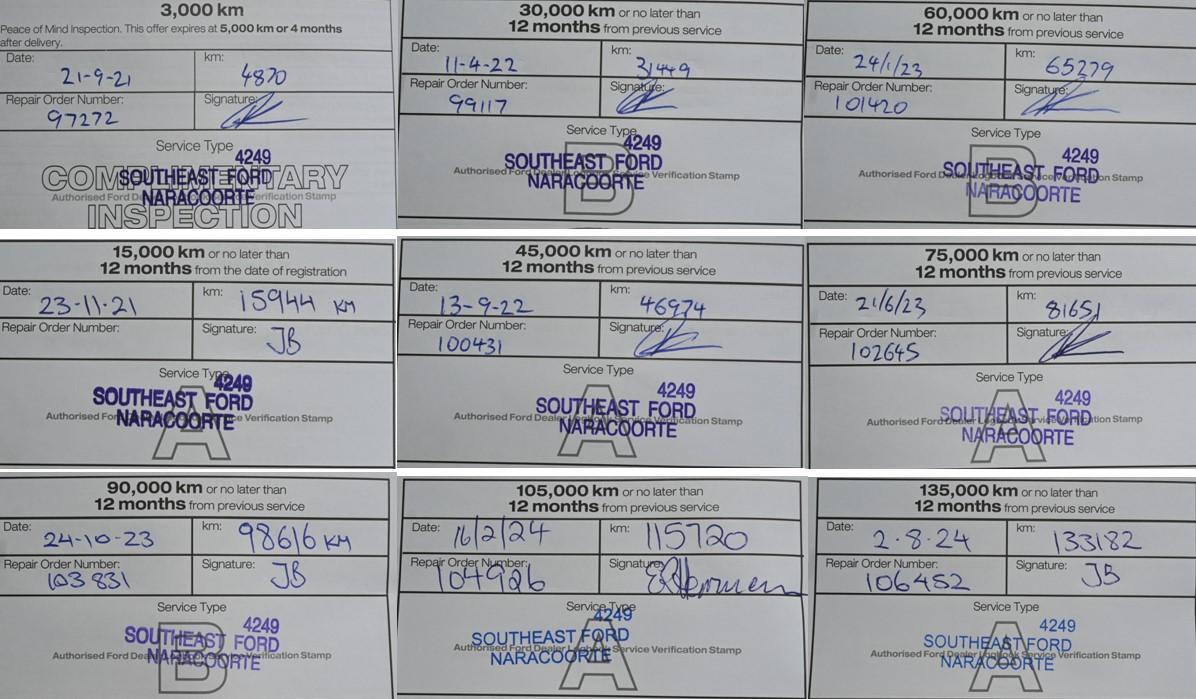 3,000 km
Peace of Mind Inspection. This offer expires at 5,000 km or 4 months
after delivery.
Date: 21-9-21
km: 4870
Repair Order Number: 97272
Signature:
Service Type
COMPLIMENTARY
INSPECTION
Authorised Ford Verification Stamp
4249
SOUTHEAST FORD
NARACOORTE
30,000 km or no later than
12 months from previous service
Date: 11-4-22
km: 31449
Repair Order Number: 99117
Signature:
Service Type
B
Authorised Ford Service Verification Stamp
4249
SOUTHEAST FORD
NARACOORTE
60,000 km or no later than
12 months from previous service
Date: 24/1/23
km: 65279
Repair Order Number: 101420
Signature:
Service Type
B
Authorised Ford Dealer Logbook Service Verification Stamp
4249
SOUTHEAST FORD
NARACOORTE
15,000 km or no later than
12 months from the date of registration
Date: 23-11-21
km: 15944 KM
Repair Order Number:
Signature: JB
Service Type
A
Authorised Ford Service Verification Stamp
4249
SOUTHEAST FORD
NARACOORTE
45,000 km or no later than
12 months from previous service
Date: 13-9-22
km: 46974
Repair Order Number: 100431
Signature:
Service Type
A
Authorised Ford Dealer Logbook Service Verification Stamp
4249
SOUTHEAST FORD
NARACOORTE
75,000 km or no later than
12 months from previous service
Date: 21/6/23
km: 81651
Repair Order Number: 102645
Signature:
Service Type
A
Authorised Ford Dealer Logbook Service Verification Stamp
4249
SOUTHEAST FORD
NARACOORTE
90,000 km or no later than
12 months from previous service
Date: 24-10-23
km: 98616 KM
Repair Order Number: 103831
Signature: JB
Service Type
B
Authorised Ford Dealer Service Verification Stamp
4249
SOUTHEAST FORD
NARACOORTE
105,000 km or no later than
12 months from previous service
Date: 16/2/24
km: 115720
Repair Order Number: 104926
Signature:
Service Type
A
Authorised Ford Dealer Logbook Service Verification Stamp
4249
SOUTHEAST FORD
NARACOORTE
135,000 km or no later than
12 months from previous service
Date: 2.8.24
km: 133182
Repair Order Number: 106452
Signature: JB
Service Type
A
Authorised Ford Dealer Logbook Service Verification Stamp
4249
SOUTHEAST FORD
NARACOORTE